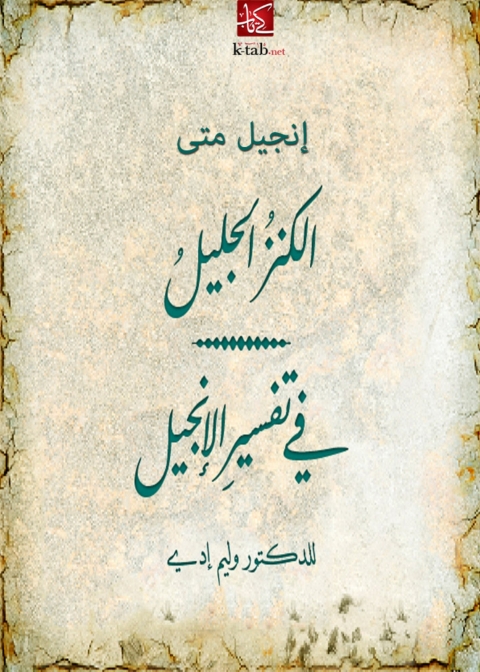 كتاب
k-tab.net
إنجيل متى
الكنزُ الجليلُ
في تفسيرِ الإنجيل
للدكتور وليم إدي